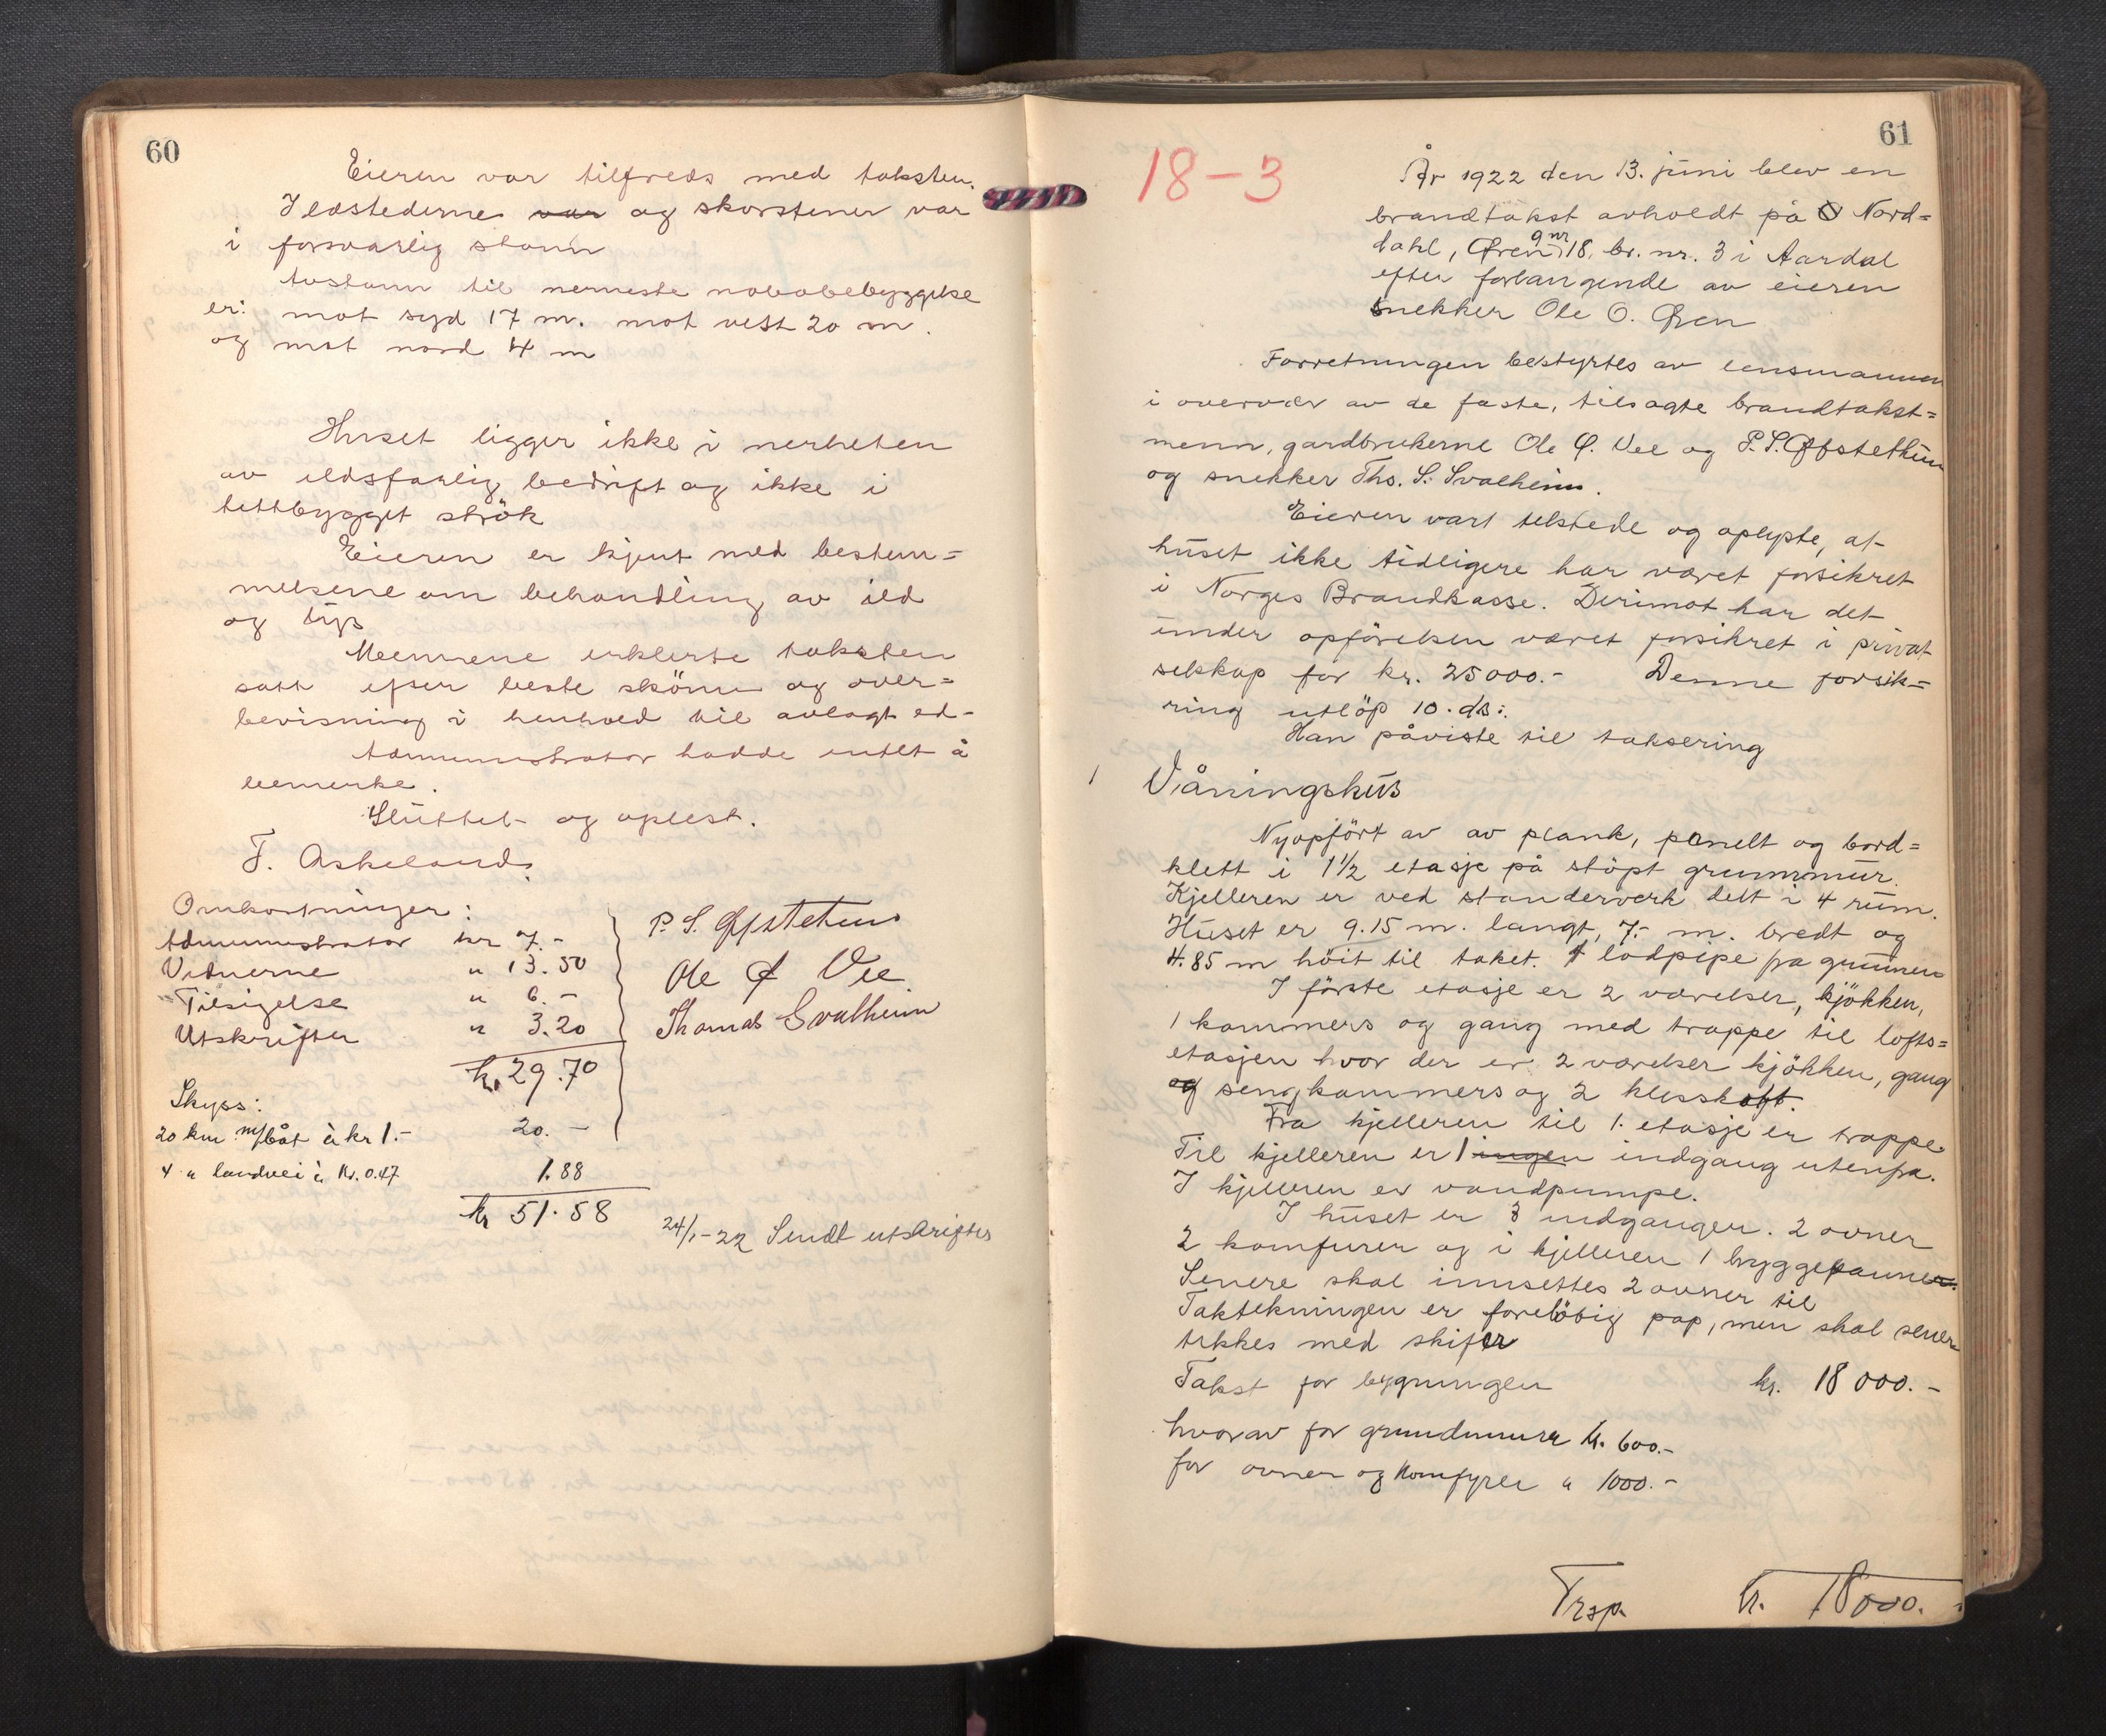 60
Eieren var tilfreds med taksten.
Ildstederne var og skorstener var
i forsvarlig stann
Avstann til nermeste nabobebyggelse
er: mot syd 17 m. mot vest 20 m.
og mot nord 4 m
Huset ligger ikke i nerheten
av ildsfarlig bedrift og ikke i
tettbygget strök
Eieren er kjent med bestem=
melsene om behandling av ild
og lys
Mennene erklerte taksten
satt efter beste skönn og over=
bevisning i henhold til avlagt ed-
Administrator hadde intet å
bemerke.
Sluttet og oplest.
F. Askeland.
Omkostninger:
Administrator kr 7.-
Vidnerne " 13.50
Tilsigelse " 6.-
Utskrifter " 3.20
kr. 29.70
P. S. Øfstetun
Ole Ø Vee
Thomas Svalheim
Skyss:
20 km m/båt à kr 1.- 20.-
4 " landvei à Kr. 0.47 1.88
kr 51.58
24/1-22 Sendt utskrifter
61
18-3
År 1922 den 13. juni blev en
brandtakst avholdt på O Nord=
dahl, Øren gnr 18, br. nr. 3 i Aardal
efter forlangende av eieren
snekker Ole O. Øren
Forretningen bestyrtes av lensmannen
i overvær av de faste, tilsagte brandtakst=
menn, gardbrukerne Ole Ø. Vee og P. S. Øfstethun
og snekker Ths. S. Svalheim.
Eieren vart tilstede og oplyste, at
huset ikke tidligere har været forsikret
i Norges Brandkasse. Derimot har det
under opförelsen været forsikret i privat
selskap for kr. 25000.- Denne forsik=
ring utlöp 10. ds.
Han påviste til taksering
1 Våningshus
Nyopfört av av plank, panelt og bord=
klett i 1 1/2 etasje på stöpt grunnmur.
Kjelleren er ved standerverk delt i 4 rum.
Huset er 9.15 m. langt, 7.- m. bredt og
4.85 m höit til taket. 1 lodpipe fra grunnen
I förste etasje er 2 værelser, kjökken,
1 kammers og gang med trappe til lofts=
etasjen hvor der er 2 værelser kjökken, gang
og sengkammers og 2 klesskott.
Fra kjelleren til 1. etasje er trappe
Til kjelleren er 1 ingen indgang utenfra.
I kjelleren er vandpumpe.
I huset er 3 indganger. 2 ovner
2 komfurer og i kjelleren 1 bryggepanner.
Senere skal innsettes 2 ovner til
Taktekningen er forelöbig pap, men skal sener
tekkes med skifer
Takst for bygningen kr. 18 000.-
hvorav for grundmurer kr. 600.-
for ovner og komfyrer " 1000.-
Trsp. kr. 18000.